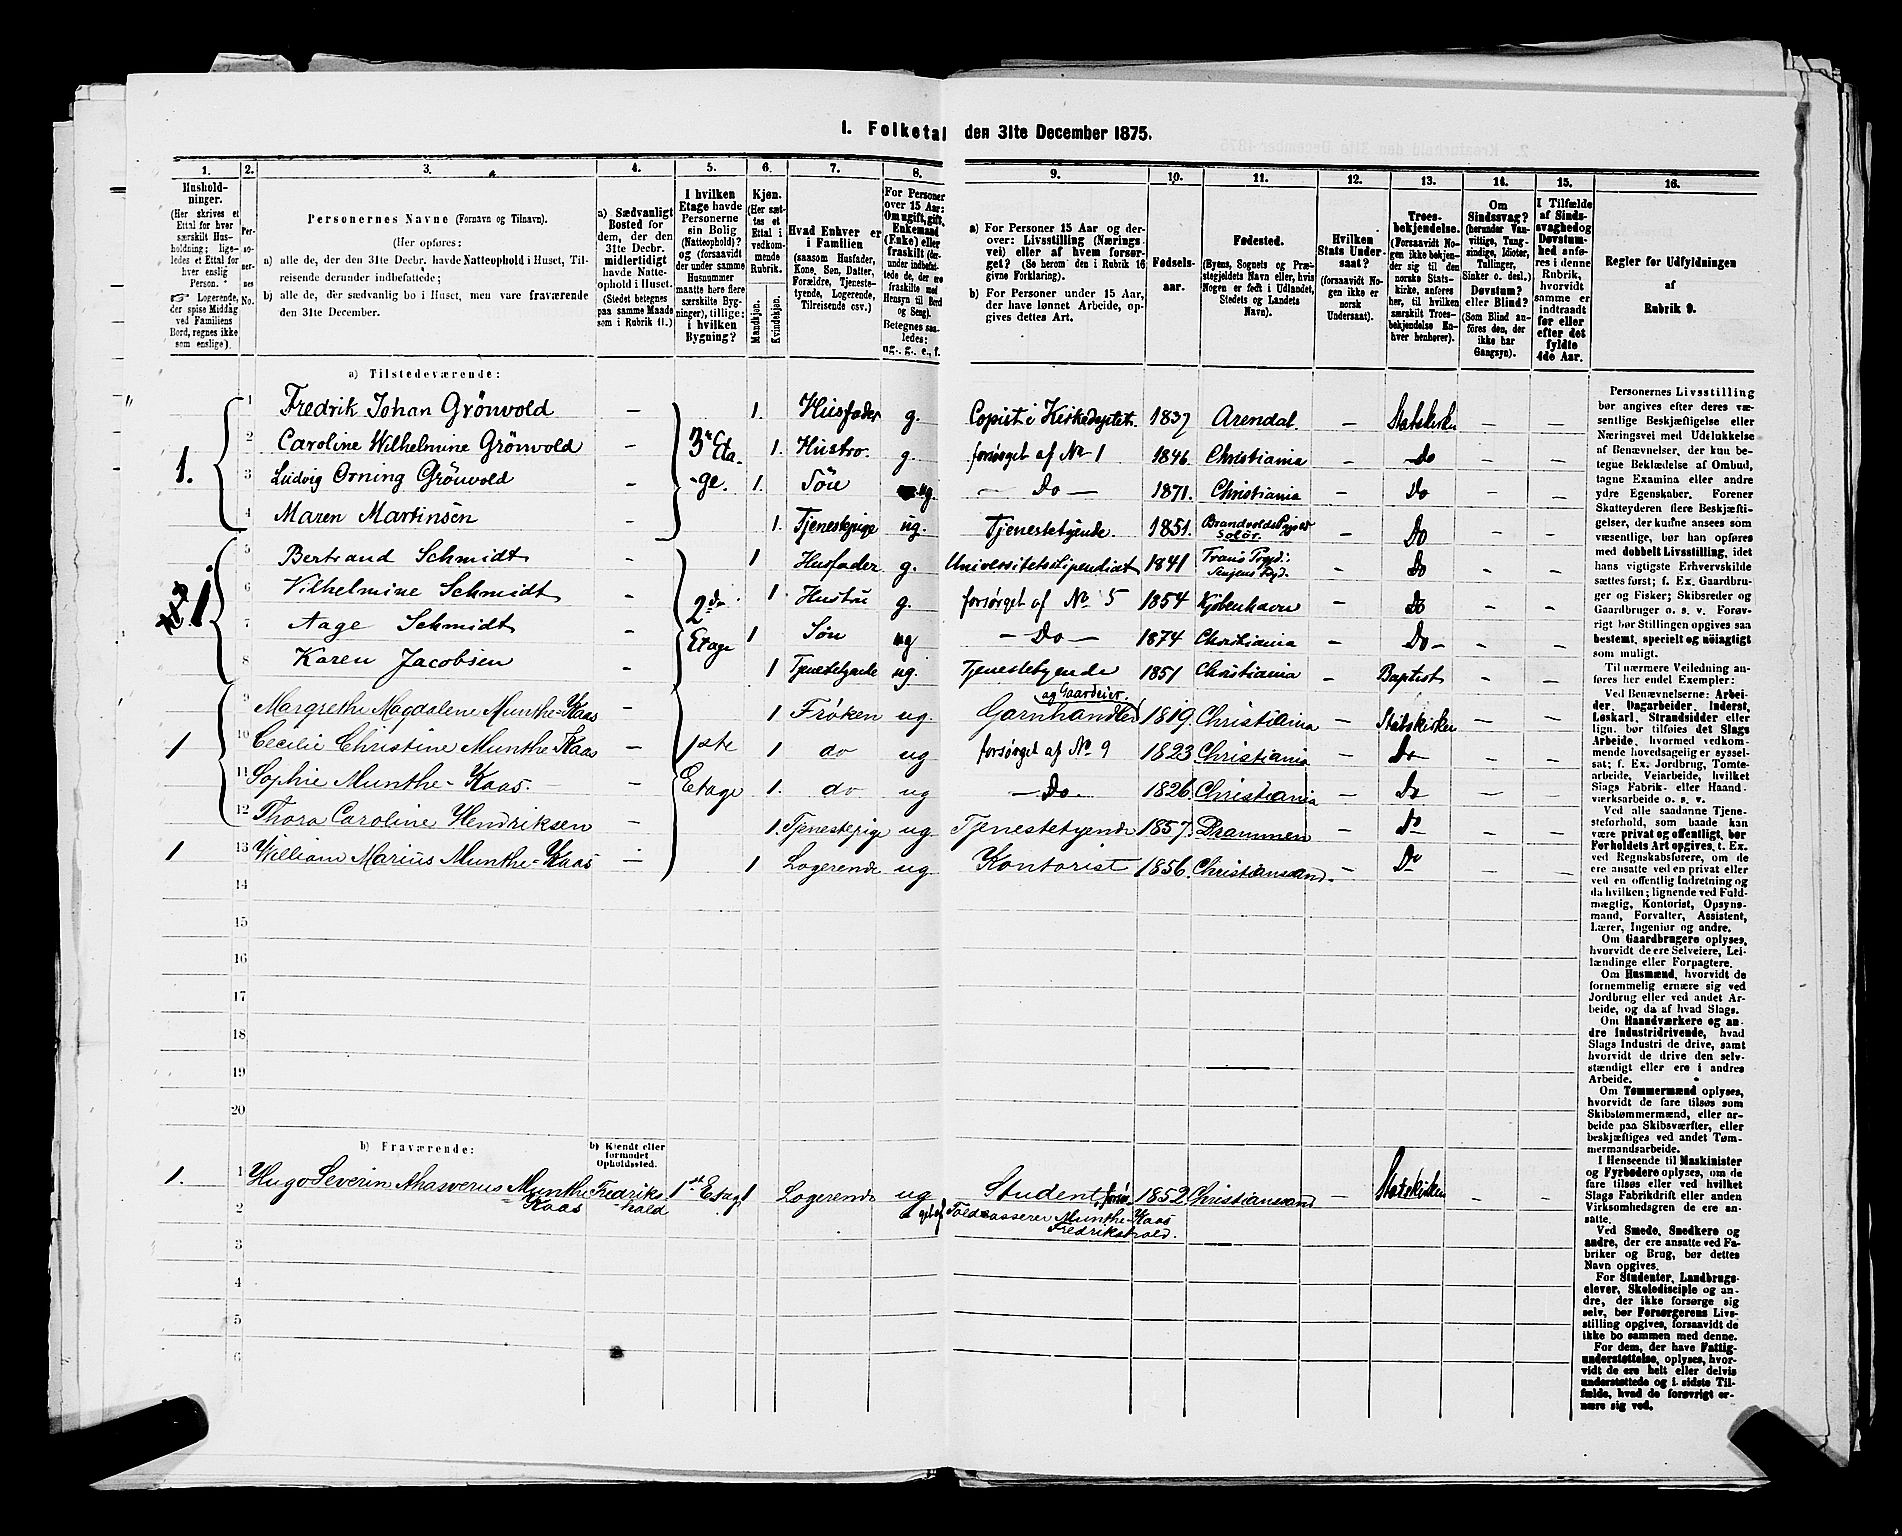 I. Folketal den 31te December 1875.
1. 2. 3. 4. 5. 6. 7. 8. 9. 10. 11. 12. 13. 14. 15. 16.
Husholdninger. (Her skrives et Ettal for hver særskilt Husholdning; ligeledes et Ettal for hver enslig Person. Logerende, der spise Middag ved Familiens Bord, regnes ikke som enslige).
Personernes No.
Personernes Navne (Fornavn og Tilnavn).
(Her opføres:
a) alle de, der den 31te Decbr. havde Natteophold i Huset, Tilreisende derunder indbefattede;
b) alle de, der sædvanlig bo i Huset, men vare fraværende den 31te December.
a) Sædvanligt Bosted for dem, der den 31te Decbr. midlertidigt havde Natteophold i Huset. (Stedet betegnes paa samme Maade som i Rubrik 11.)
I hvilken Etage havde Personerne sin Bolig (Natteophold)? og (forsaavidt der under samme Husnummer maatte høre flere særskilte Bygninger), tillige: i hvilken Bygning?
Kjøn. (Her sættes et Ettal i vedkommende Rubrik. Mandkjøn. Kvindekjøn.
Hvad Enhver er i Familien (saasom Husfader, Kone, Søn, Datter, Forældre, Tjenestetyende, Logerende, Tilreisende osv.)
For Personer over 15 Aar: Om ugift, gift, Enkemand (Enke) eller fraskilt (derunder indbefattede de, der ere fraskilte med Hensyn til Bord og Seng). Betegnes saaledes: ug., g., e., f.
a) For Personer 15 Aar og derover: Livsstilling (Næringsvei) eller af hvem forsørget? (Se herom den i Rubrik 16 givne Forklaring).
b) For Personer under 15 Aar, der have lønnet Arbeide, opgives dettes Art.
Fødselsaar.
Fødested. (Byens, Sognets og Præstegjeldets Navn eller, hvis Nogen er født i Udlandet, Stedets og Landets Navn).
Hvilken Stats Undersaat? (forsaavidt Nogen ikke er norsk Undersaat).
Troesbekjendelse. (Forsaavidt Nogen ikke bekjender sig til den norske Statskirke, anføres her, til hvilken særskilt Troesbekjendelse Enhver henhører).
Om Sindssvag? (herunder Vanvittige, Tungsindige, Idioter, Tullinger, Sinker o. desl.) Døvstum? eller Blind? (Som Blind anføres den, der ikke har Gangsyn).
I Tilfælde af Sindssvaghed og Døvstumhed anføres i denne Rubrik, hvorvidt samme er indtraadt før eller efter det fyldte 4de Aar.
Regler for Udfyldningen af Rubrik 9.
a) Tilstedeværende:
1. 1 Fredrik Johan Grönvold – 3die Etage. 1. Husfader g. Copist i Kirkedeptet. 1837 Arendal. – Statskirken – –
2 Caroline Wilhelmine Grönvold – 1. Hustro. g. forsørget af No 1 1846. Christiania – Do – –
3 Ludvig Orning Grönvold – 1. Sön ug. – Do – 1871. Christiania – Do – –
4 Maren Martinsen – 1. Tjenestepige ug. Tjenestetyende. 1851. Brandvolds Pgjeld Solör. – Do – –
1 5 Bertrand Schmidt – 2den Etage 1 Husfader g. Universitetsstipendiat 1841 Tranö Pgjd: Senjens Fgd. – Do – –
6 Vilhelmine Schmidt – 1 Hustru g. forsørget af No 5 1854 Kjøbenhavn – Do – –
7 Aage Schmidt – 1 Søn ug – Do – 1874 Christiania – Do – – –
8 Karen Jacobsen – 1 Tjenestetyende ug. Tjenestetyende 1851 Christiania – Baptist – –
1 9 Margrethe Magdalene Munthe-Kaas – 1ste Etage 1 Frøken ug. Garnhandler og Gaardeier. 1819. Christiania – Statskirken – –
10 Cecilie Christine Munthe Kaas – 1 do ug forsørget af No 9 1823 Christiania – Do – –
11 Sophie Munthe-Kaas. – 1. do ug – Do – 1826. Christiania – Do – –
12 Thora Caroline Hendriksen – 1. Tjenestepige ug Tjenestetyende 1857. Drammen – Do – –
1 13 William Marius Munthe-Kaas – 1 Logerende ug. Kontorist 1856. Christiansand. – Do – –
14
15
16
17
18
19
20
b) Fraværende:
b) Kjendt eller formodet Opholdssted.
1. 1 Hugo Severin Ahasverus Munthe-Kaas Fredrikshald 1ste Etage 1 Logerende ug Student, forsørget af Toldkasserer Munthe-Kaas Fredrikshald. 1852. Christiansand – Statskirken – –
2
3
4
5
6
Personernes Livsstilling
bør angives efter deres væ-
sentlige Beskjæftigelse eller
Næringsvei med Udelukkelse
af Benævnelser, der kun be-
tegne Beklædelse af Ombud,
tagne Examina eller andre
ydre Egenskaber. Forener
Skatteyderen flere Beskjæfti-
gelser, der kunne ansees som
væsentlige, bør han opføres
med dobbelt Livsstilling, idet
hans vigtigste Erhvervskilde
sættes først; f. Ex. Gaardbru-
ger og Fisker; Skibsreder og
Gaardbruger o. s. v. Forøv-
rigt bør Stillingen opgives saa
bestemt, specielt og nøiagtigt
som muligt.
Til nærmere Veiledning an-
føres her endel Exempler:
Ved Benævnelserne: Arbei-
der, Dagarbeider, Inderst,
Løskarl, Strandsidder eller
lign. bør tilføies det Slags
Arbeide, hvormed vedkom-
mende hovedsagelig er syssel-
sat; f. Ex. Jordbrug, Tomte-
arbeide, Veiarbeide, hvilket
Slags Fabrik- eller Haand-
værksarbeide o. s. v.
Ved alle saadanne Tjene-
steforhold, som baade kan
være privat og offentligt, bør
Forholdets Art opgives, f. Ex.
ved Regnskabsførere, om de
ere ansatte ved en privat eller
ved en offentlig Indretning og
da hvilken; lignende ved Fuld-
mægtig, Kontorist, Opsyns-
mand, Forvalter, Assistent,
Lærer, Ingeniør og andre.
Om Gaardbrugere oplyses,
hvorvidt de ere Selveiere, Lei-
lændinge eller Forpagtere.
Om Husmænd, hvorvidt de
fornemmelig ernære sig ved
Jordbrug eller ved andet Ar-
beide, og da af hvad Slags.
Om Haandværkere og an-
dre Industridrivende, hvad
Slags Industri de drive, samt
hvorvidt de drive den selv-
stændigt eller ere i andres
Arbeide.
Om Tømmermænd oplyses,
hvorvidt de fare tilsøs som
Skibstømmermænd, eller ar-
beide paa Skibsværfter, eller
beskjæftiges ved andet Tøm-
mermandsarbeide.
I Henseende til Maskinister
og Fyrbødere oplyses, om de
fare tilsøs eller ved hvilket
Slags Fabrikdrift eller anden
Virksomhedsgren de ere an-
satte.
Ved Smede, Snedkere og
andre, der ere ansatte ved Fa-
briker og Brug, bør dettes
Navn opgives.
For Studenter, Landbrugs-
elever, Skoledisciple og an-
dre, der ikke forsørge sig
selv, bør Forsørgerens Livs-
stilling opgives, forsaavidt de
ikke bo sammen med denne.
For dem, der have Fattig-
understøttelse, oplyses, hvor-
vidt de ere helt eller delvis
understøttede og i sidste Til-
fælde, hvad de forøvrigt er-
nære sig ved.